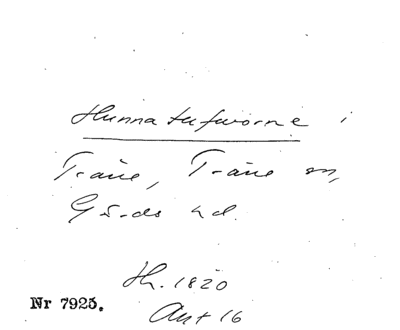 Hunnatufvorne i
Träne, Träne sn,
Gärds hd.
Th. 1820
Ant 16
Nr 7925.